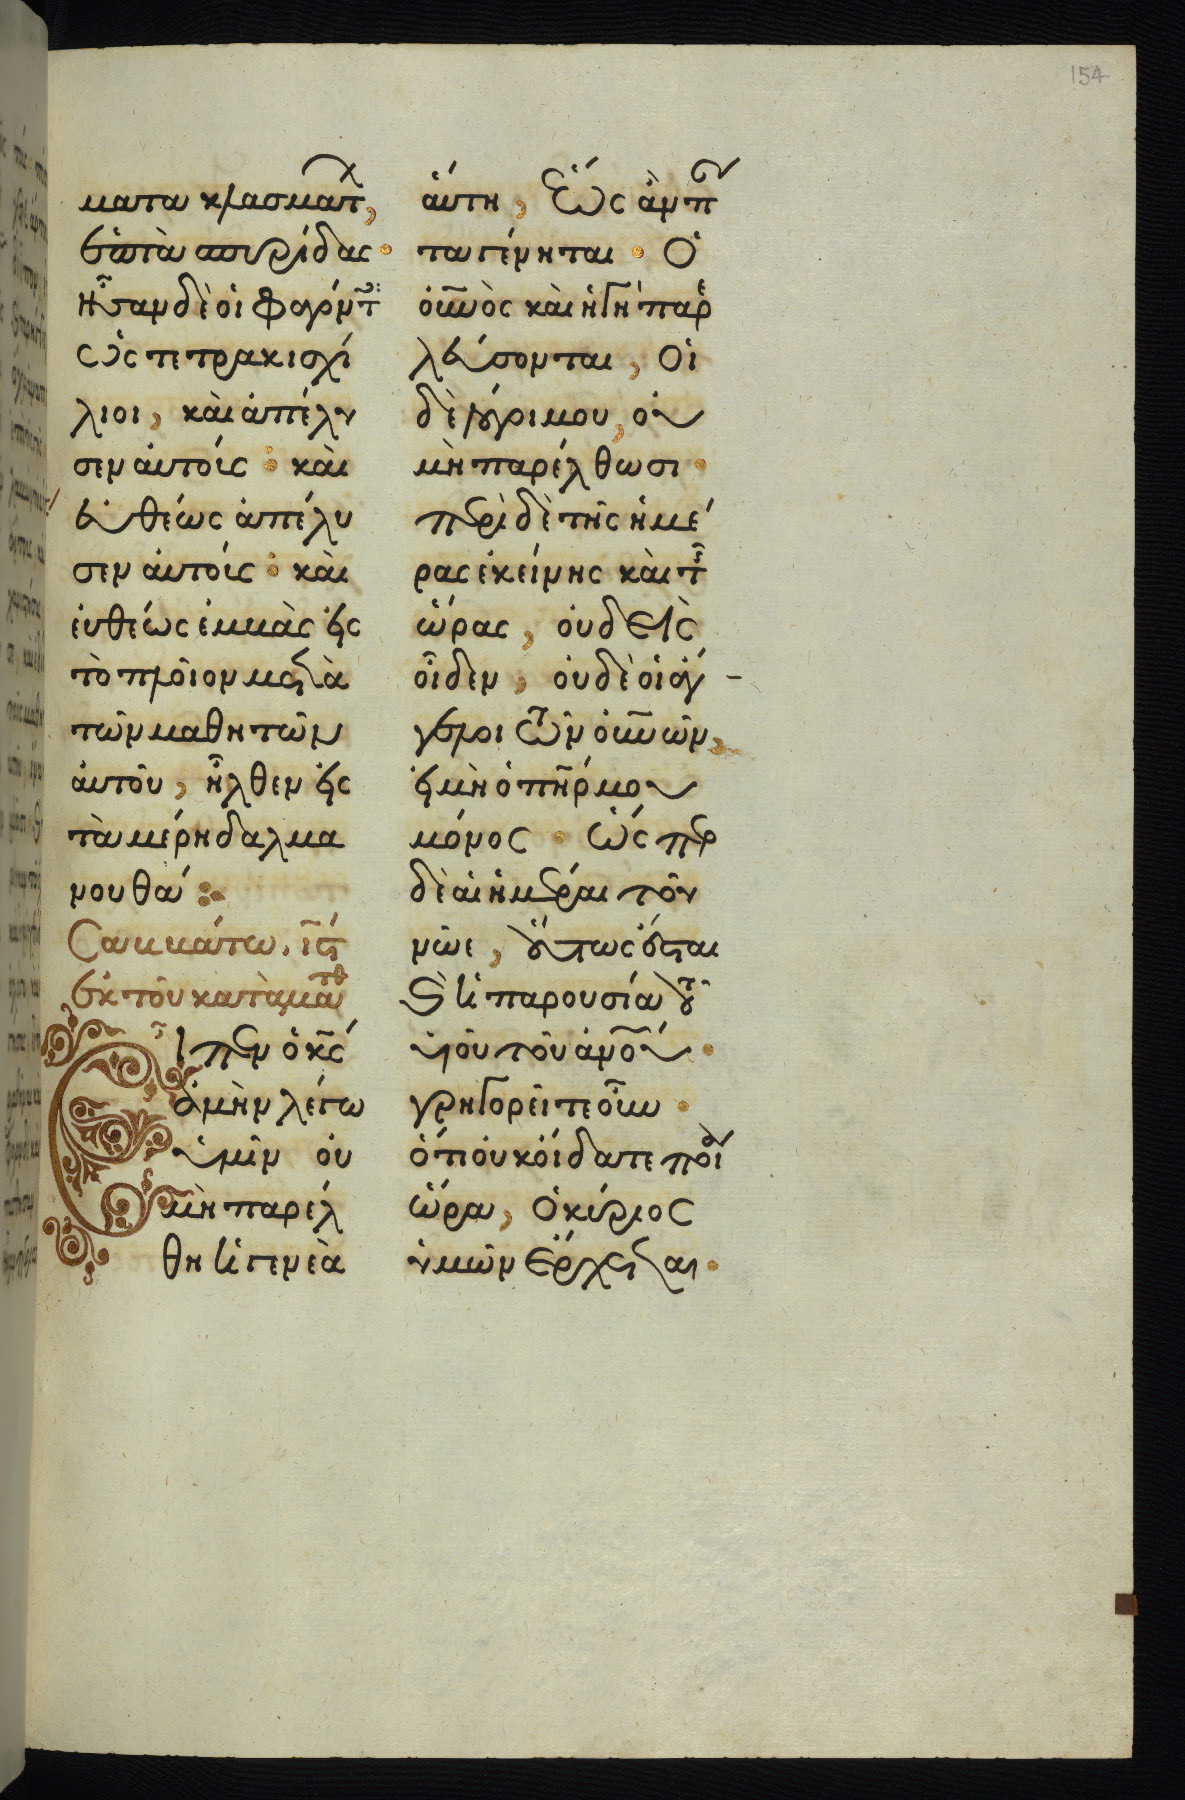 154
ματα κλασματ,
ἑπτὰ σπυρίδας·
ἦσαν δὲ οἱ φαγόντ
ὡς τετρακισχί
λιοι, καὶ ἀπέλυ
σεν αὐτούς· καὶ
εὐθέως ἀπέλυ
σεν αὐτούς· καὶ
εὐθέως ἐμβὰς εἰς
τὸ πλοῖον μετὰ
τῶν μαθητῶν
αὐτοῦ, ἦλθεν εἰς
τὰ μέρη δαλμα
νουθά
Σαββάτω. ις
ἐκ τοῦ κατὰ ματθ
Εἶπεν ὁ κς
ἀμὴν λέγω
ὑμῖν οὐ
μὴ παρέλ
θη ἡ γενεὰ
αὕτη, ἕως ἂν π
τα γένηται· ὁ
οὐνὸς καὶ ἡ γῆ παρε
λεύσονται, οἱ
δὲ λόγοι μου, οὐ
μὴ παρέλθωσι·
περὶ δὲ τῆς ἡμέ
ρας ἐκείνης καὶ τῆς
ὥρας, οὐδεὶς
οἶδεν, οὐδὲ οἱ ἄγ
γελοι τῶν οὐνῶν,
εἰ μὴ ὁ πηρ μου
μόνος· ὥσπερ
δὲ αἱ ἡμέραι τοῦ
νῶε, οὕτως ἔσται
καὶ ἡ παρουσία τοῦ
υἱοῦ τοῦ ἀνου·
γρηγορεῖτε οὖν·
ὅτι οὐκ οἴδατε ποία
ὥρα, ὁ κύριος
ὑμῶν ἔρχεται·